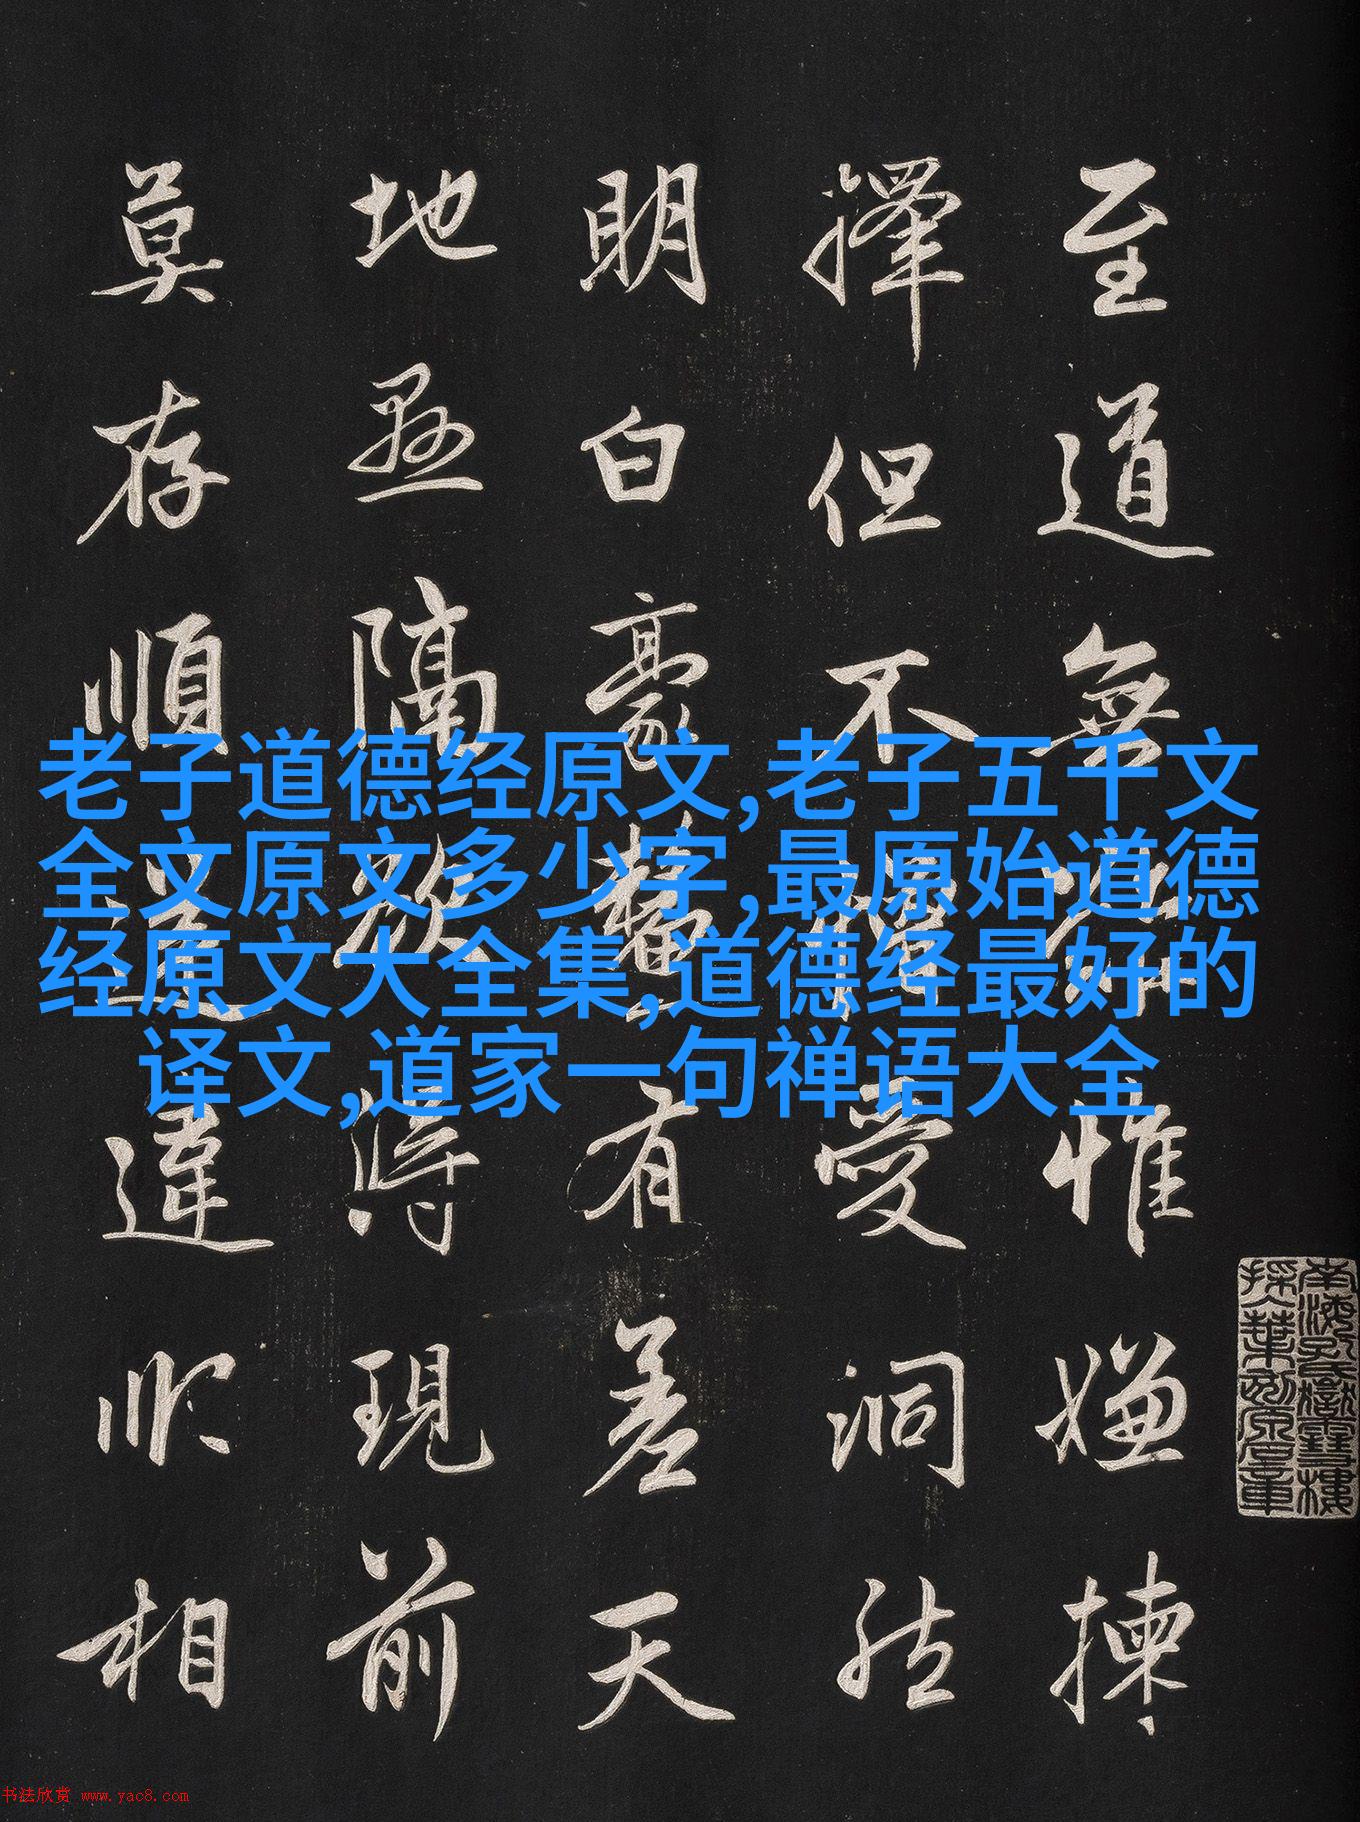 至道無難惟嫌揀
擇但不憎愛洞然
明白豪釐有差天
地懸隔欲得現前
莫存順逆違順相
老子道德经原文,老子五千文
全文原文多少字,最原始道德
经原文大全集,道德经最好的
译文,道家一句禅语大全
南海孔氏嶽雪樓
书法欣赏 www.yac8.com